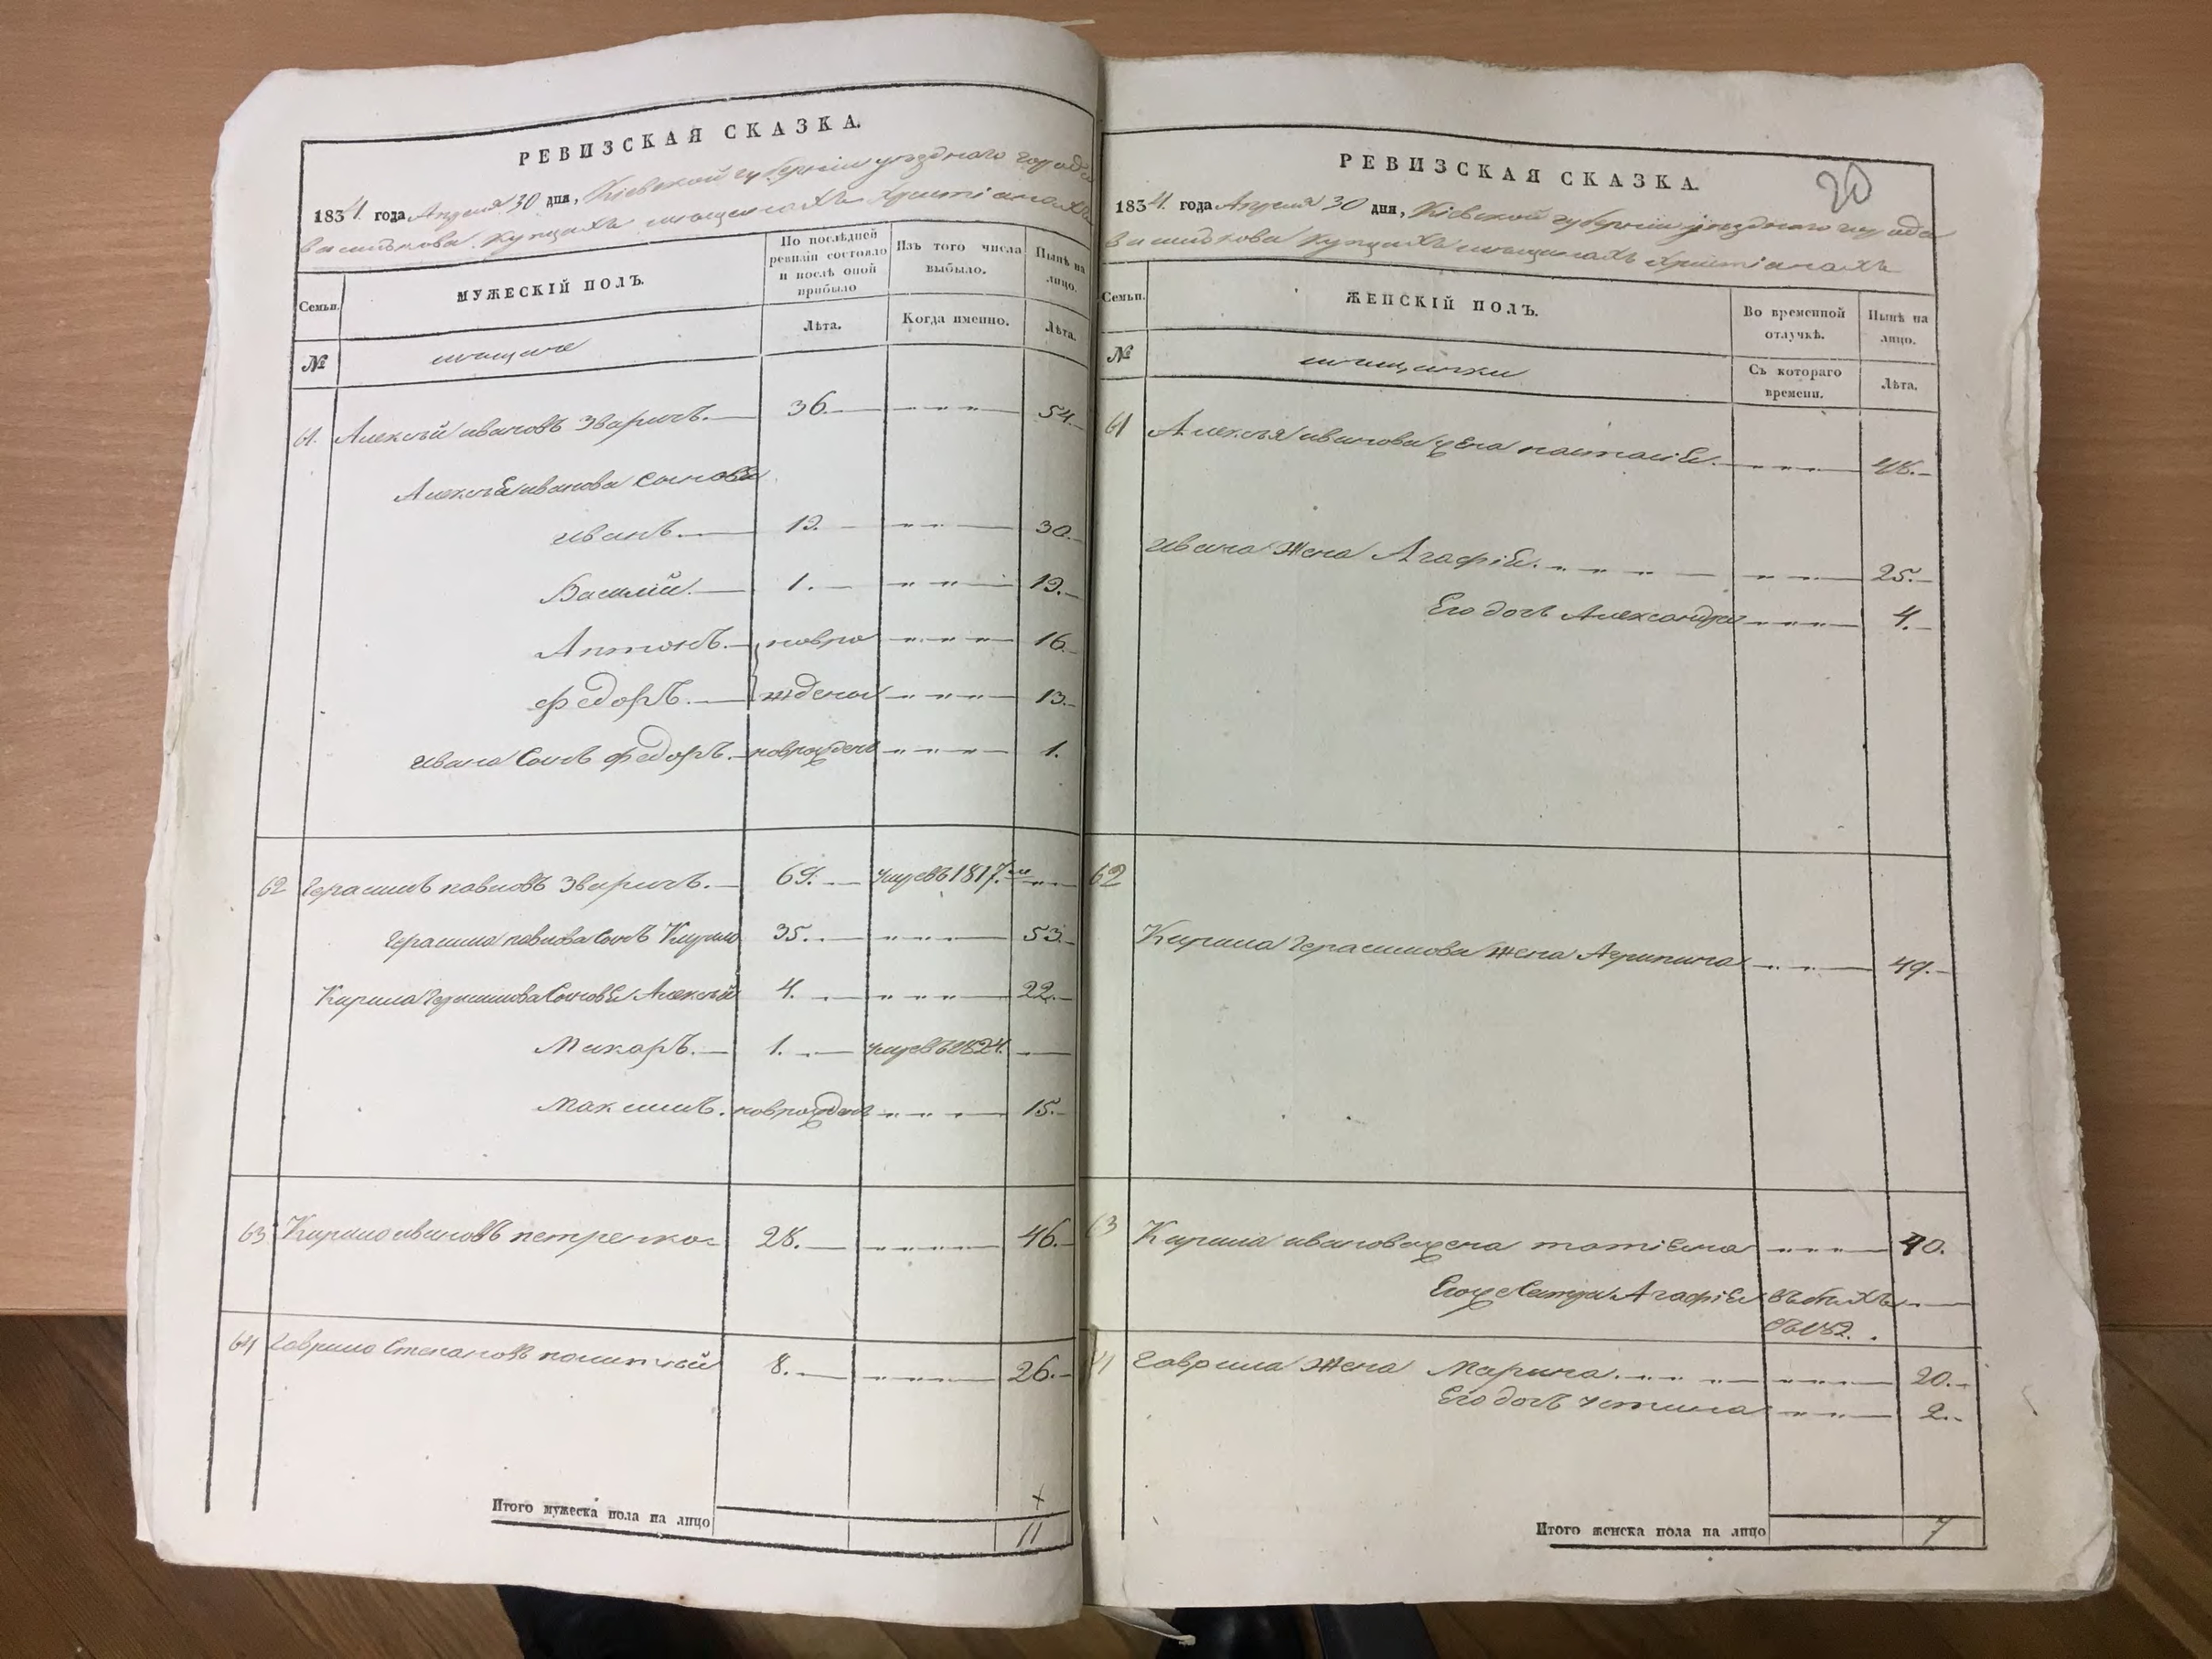 РЕВИЗСКАЯ СКАЗКА.
1834 года Апреля 30 дня, Кіевской губерніи уезднаго города
Василькова купцахъ мещанахъ христіанахъ
Семьи.
МУЖЕСКІЙ ПОЛЪ.
По послѣдней ревизіи состояло и послѣ оной прибыло
Изъ того числа выбыло.
Нынѣ на лицо.
Лѣта.
Когда именно.
Лѣта.
№
мещане
61. Алексѣй ивановъ Зваричъ. 36. 54.
Алексѣя иванова сыновья
иванъ. 12. 30.
Василий. 1. 19.
Антонъ. новро 16.
федоръ. жденои 13.
ивана Сынъ федоръ. новрожденъ 1.
62 Герасимъ павловъ Зваричъ. 69. умре въ 1817.
Герасима павлова Сынъ Кирило 35. 53.
Кирила Герасимова Сыновья Алексѣй 4. 22.
Макаръ. 1. умре въ 1824.
Максимъ. новрожденъ 15.
63 Кирило ивановъ петренко 28. 46.
64 Гаврило Степановъ 8. 26.
Итого мужеска пола на лицо
11
РЕВИЗСКАЯ СКАЗКА.
20
1834 года Апреля 30 дня, Кіевской губерніи уезднаго города
Василькова Купцахъ мещанахъ христіанахъ
Семьи.
ЖЕНСКІЙ ПОЛЪ.
Во временной отлучкѣ.
Нынѣ на лицо.
№
мещанки
Съ котораго времени.
Лѣта.
61 Алексѣя иванова жена настасія. 48.
ивана жена Агафія. 25.
Его дочь Александра 4.
62
Кирила Герасимова жена Агрипина 49.
63 Кирила иванова жена татіяна 40.
Его же Сестра Агафія въ бегахъ
съ 1832.
64 Гаврила жена Марина. 20.
Его дочь устина 2.
Итого женска пола на лицо
7